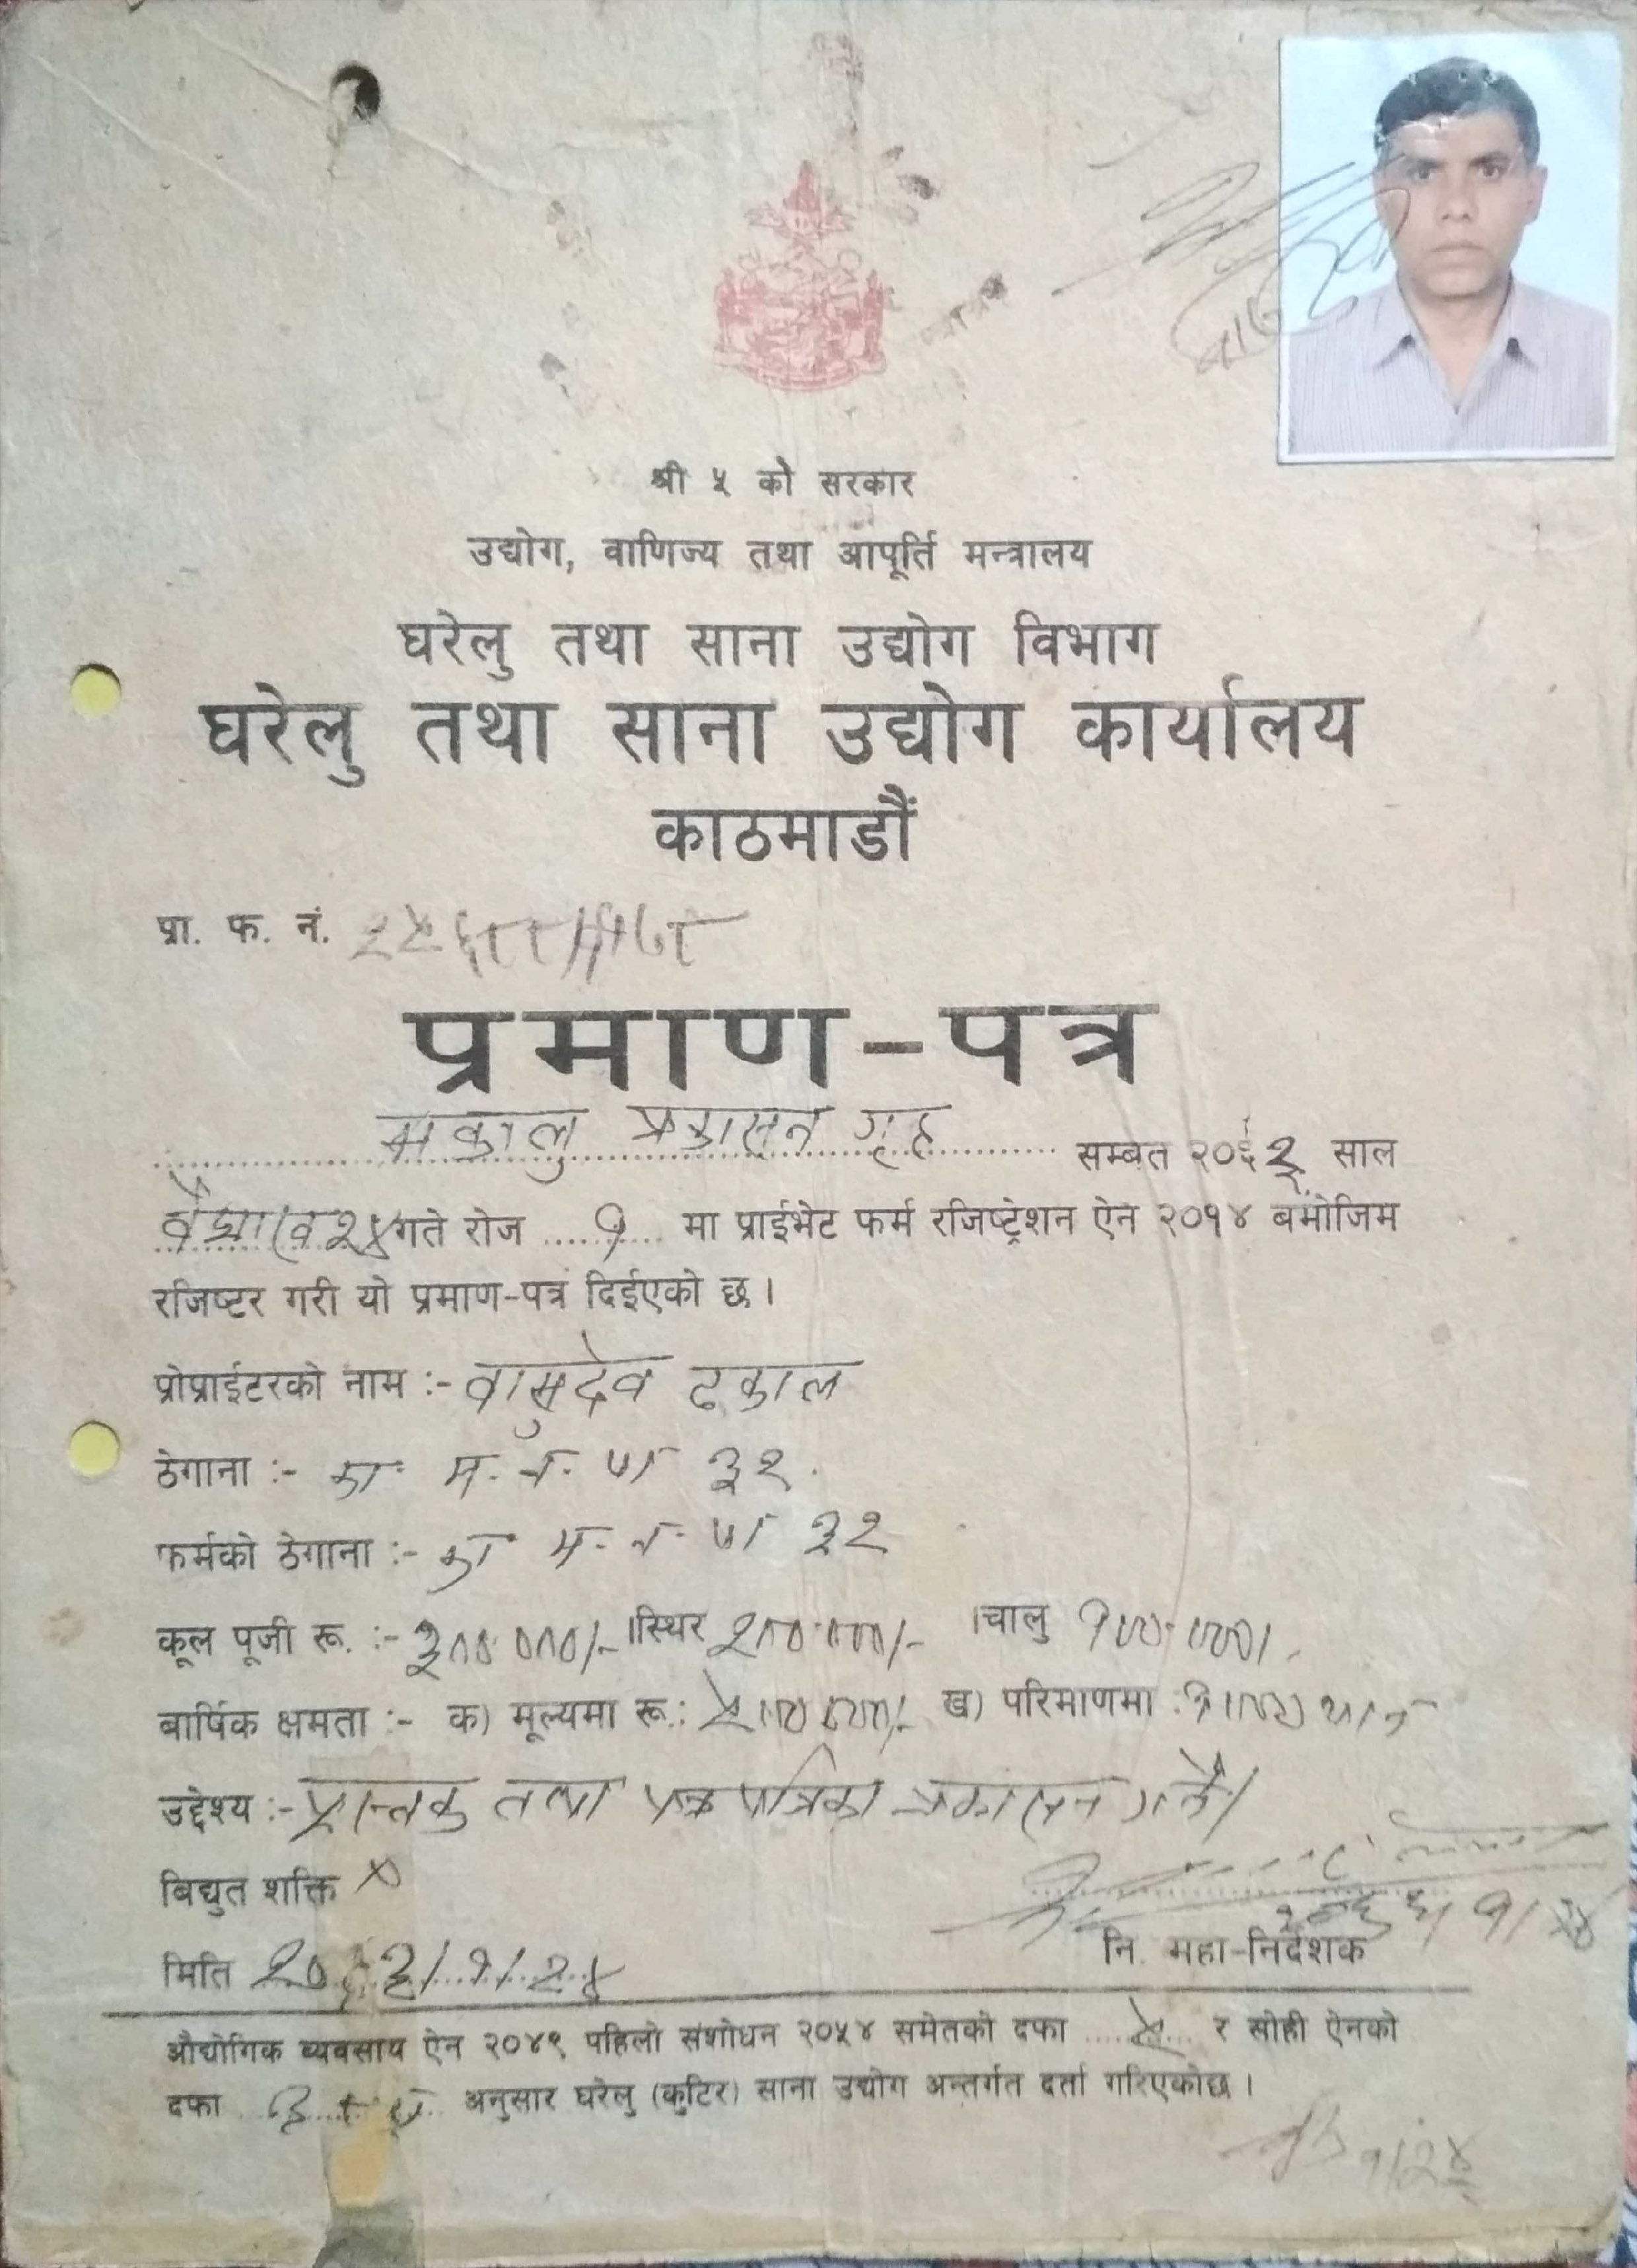 श्री ५ को सरकार
उद्योग, वाणिज्य तथा आपूर्ति मन्त्रालय
घरेलु तथा साना उद्योग विभाग
घरेलु तथा साना उद्योग कार्यालय
काठमाडौं
प्रा. फ. नं.
प्रमाण-पत्र
मकालु प्रकासन गृह सम्बत २०६३ साल
बैशाख २४ गते रोज १ मा प्राईभेट फर्म रजिष्ट्रेशन ऐन २०१४ बमोजिम
रजिष्टर गरी यो प्रमाण-पत्र दिईएको छ ।
प्रोप्राईटरको नाम :- वासुदेव ढकाल
ठेगाना :- का. म. न. पा ३२
फर्मको ठेगाना :- का म. न. पा ३२
कूल पूजी रू. :- ३०० ०००/- ।स्थिर २०० ०००/- ।चालु १०० ०००/-
बार्षिक क्षमता :- क) मूल्यमा रू.: ख) परिमाणमा :
उद्देश्य :- पुस्तक तथा पत्र पत्रिका प्रकासन गर्ने ।
बिद्युत शक्ति ×
नि. महा-निर्देशक
मिति २०६३/१/२४
औद्योगिक ब्यवसाय ऐन २०४९ पहिलो संशोधन २०५४ समेतको दफा र सोही ऐनको
दफा अनुसार घरेलु (कुटिर) साना उद्योग अन्तर्गत दर्ता गरिएकोछ ।